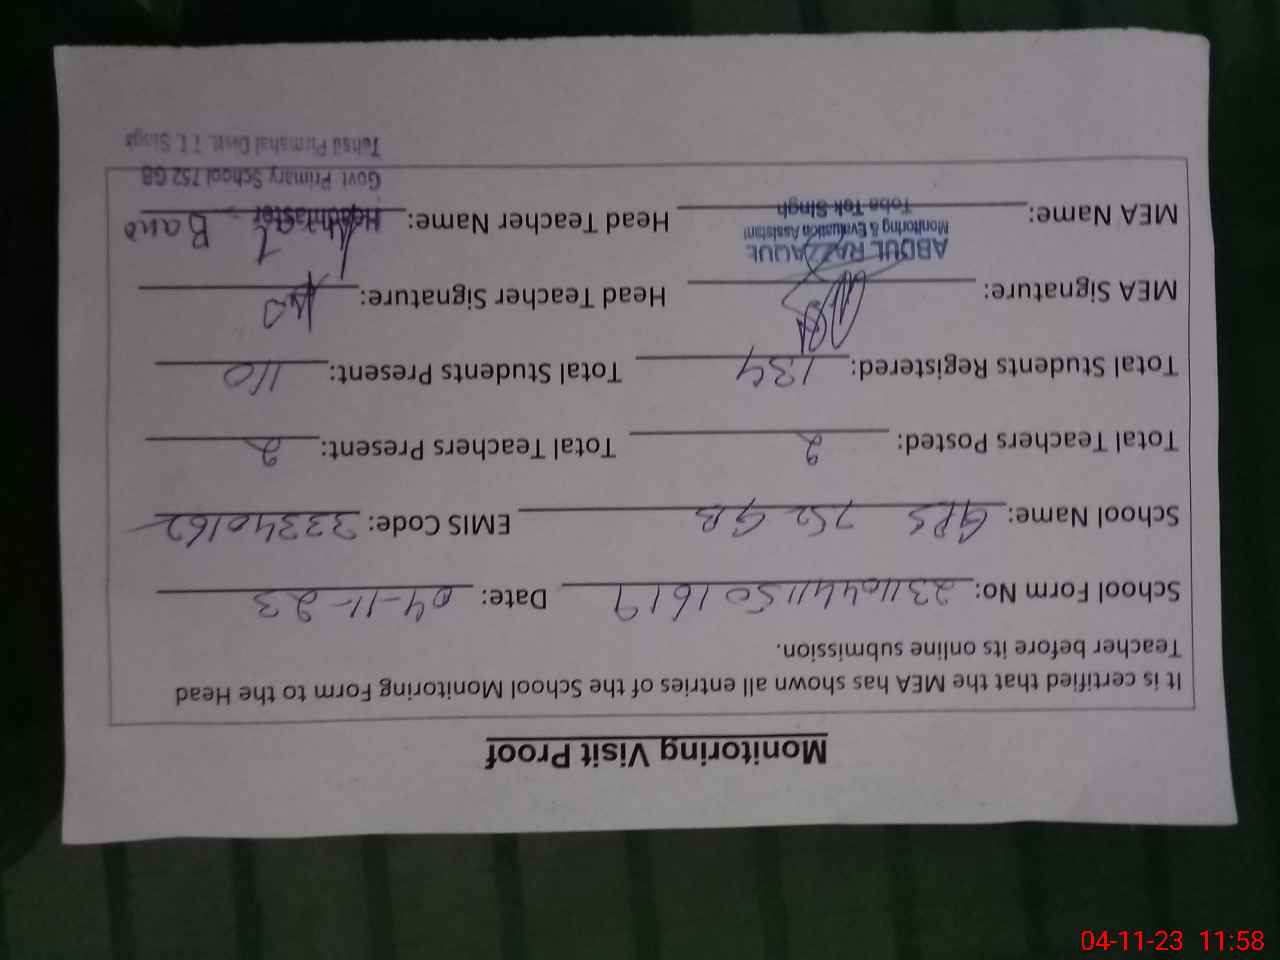 Monitoring Visit Proof
It is certified that the MEA has shown all entries of the School Monitoring Form to the Head
Teacher before its online submission.
School Form No: 231104411501619 Date: 04-11-23
School Name: GPS 752 GB EMIS Code: 33340162
Total Teachers Posted: 2 Total Teachers Present: 2
Total Students Registered: 134 Total Students Present: 110
MEA Signature: Head Teacher Signature:
ABDUL RAZZAQUE
Monitoring & Evaluation Assistant
Toba Tek Singh
MEA Name: Head Teacher Name: Bano
Headmaster
Govt. Primary School 752 GB
Tehsil Pirmahal Distt. T.T. Singh
04-11-23 11:58